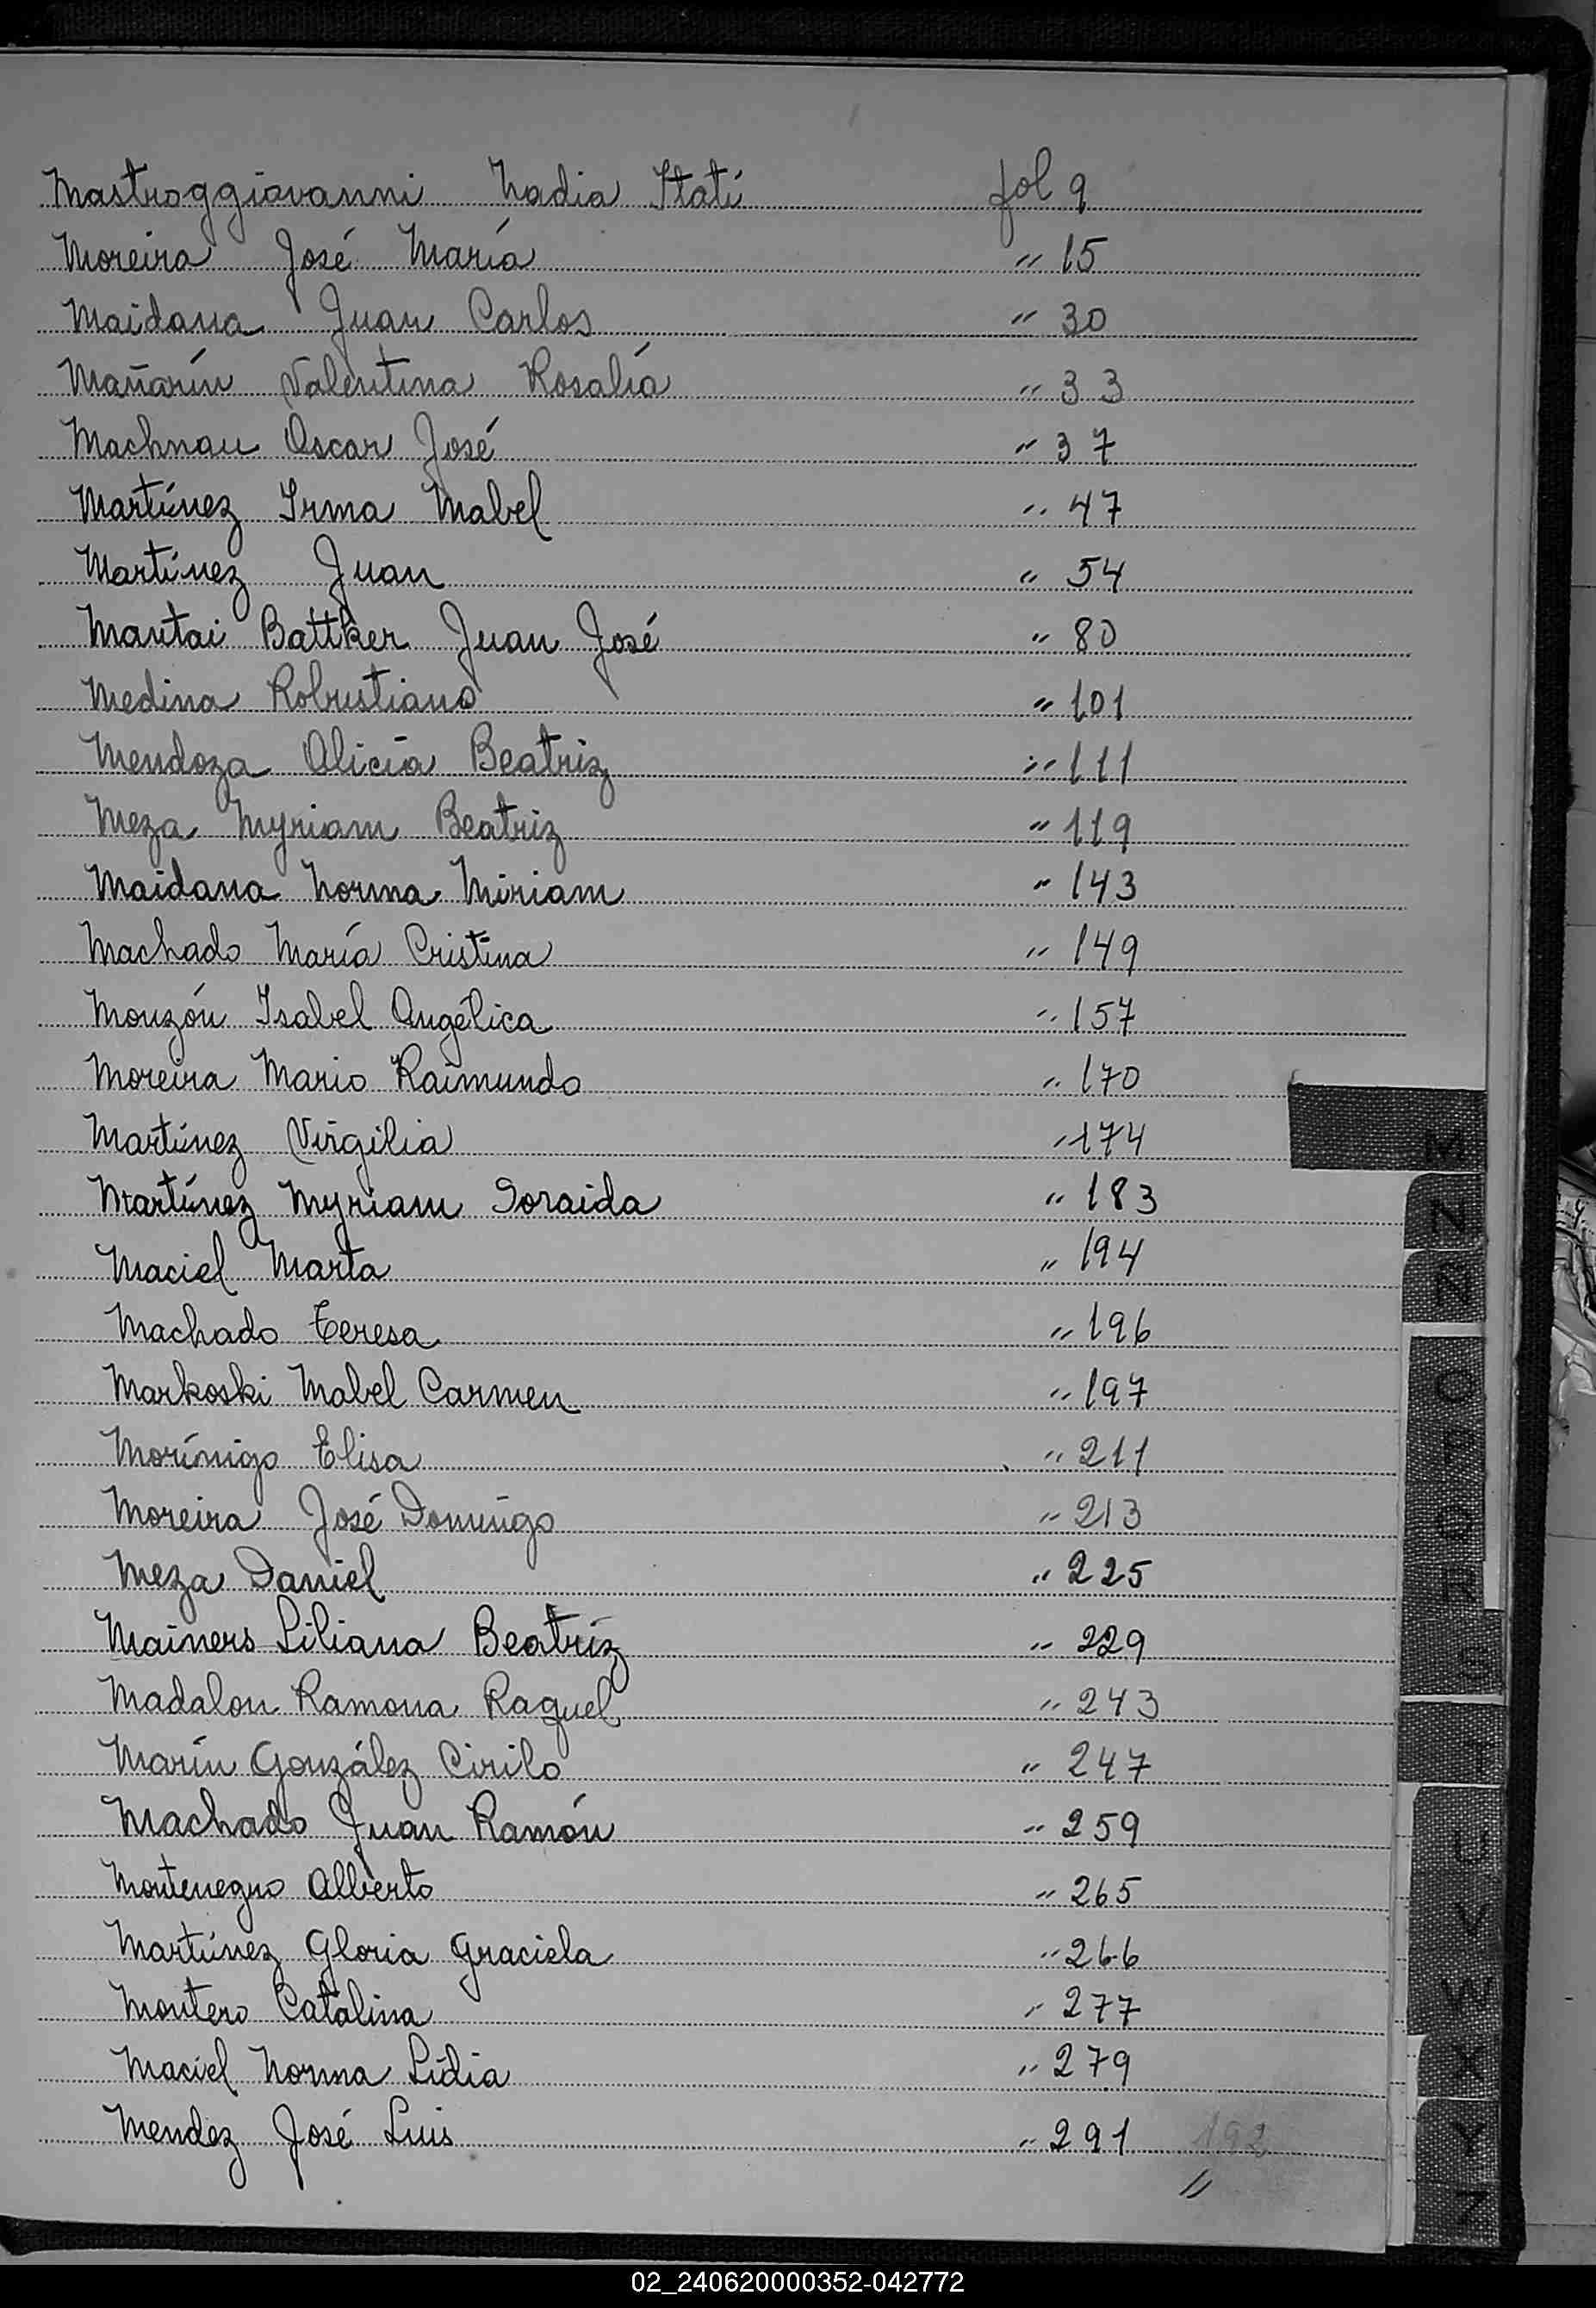 Mastroggiovanni Nadia Itatí fol 9
Moreira José María " 15
Maidana Juan Carlos " 30
Mañarín Valentina Rosalía " 33
Machnau Oscar José " 37
Martínez Irma Mabel " 47
Martínez Juan " 54
Mantai Battker Juan José " 80
Medina Robustiano " 101
Mendoza Alicia Beatriz " 111
Meza Myriam Beatriz " 119
Maidana Norma Miriam " 143
Machado María Cristina " 149
Monzón Isabel Angélica " 157
Moreira Mario Raimundo " 170
Martínez Virgilia " 174
Martínez Myriam Soraida " 183
Maciel Marta " 194
Machado Teresa " 196
Markoski Mabel Carmen " 197
Morínigo Elisa " 211
Moreira José Domingo " 213
Meza Daniel " 225
Mainers Liliana Beatriz " 229
Madalon Ramona Raquel " 243
Marín González Cirilo " 247
Machado Juan Ramón " 259
Montenegro Alberto " 265
Martínez Gloria Graciela " 266
Montero Catalina " 277
Maciel Norma Lidia " 279
Mendez José Luis " 291 192
"
M
N
Ñ
O
P
Q
R
S
T
U
V
W
X
Y
Z
02_240620000352-042772